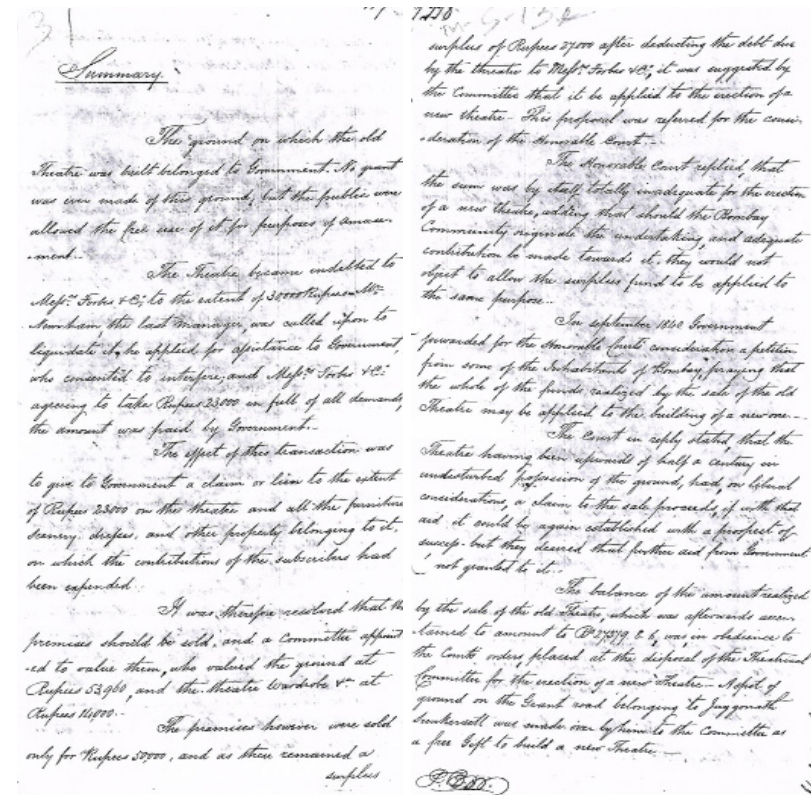 Summary.
The ground on which the old
Theatre was built belonged to Government. No grant
was ever made of this ground, but the public were
allowed the free use of it for purposes of amuse-
-ment.
The Theatre, became indebted to
Messrs. Forbes & Co; to the extent of 30000 Rupees Mr.
Newnham the last Manager, was called upon to
liquidate it, he applied for assistance to Government,
who consented to interfere, and Messrs. Forbes & Co:
agreeing to take Rupees 23000 in full of all demands,
the amount was paid by Government.-
The effect of this transaction was
to give to Government a claim or lien to the extent
of Rupees 23000 on the theatre and all the furniture
scenery, dresses, and other property belonging to it,
on which the contributions of the subscribers had
been expended.
It was therefore resolved that the
premises should be sold, and a Committee appoint
-ed to value them, who valued the ground at
Rupees 53,960, and the theatre Wardrobe &ca at
Rupees 14,000.-
The premises however were sold
only for Rupees 50000, and as there remained a
surplus
surplus of Rupees 27000 after deducting the debt due
by the theatre to Messrs. Forbes & Co, it was suggested by
the Committee that it be applied to the erection of a
new theatre - This proposal was referred for the consi-
-deration of the Honorable Court.-
The Honorable Court replied, that
the sum was by itself totally inadequate for the erection
of a new theatre, adding that should the Bombay
Community originate the undertaking, and adequate
contribution be made towards it, they would not
object to allow the surplus fund to be applied to
the same purpose.-
In september 1840 Government
forwarded for the Honorable Courts consideration a petition
from some of the Inhabitants of Bombay, praying that
the whole of the funds realized by the sale of the old
Theatre may be applied to the building of a new one.-
The Court in reply stated, that the
Theatre having been upwards of half a century in
undisturbed possession of the ground, had, on liberal
considerations, a claim to the sale proceeds, if with that
aid it could be again established with a prospect of
success, but they desired that further aid from Government
not granted to it.-
The balance of the amount realized
by the sale of the old Theatre, which was afterwards ascer-
-tained to amount to Rs 27379. 8. 6, was in obedience to
the Courts orders placed at the disposal of the Theatrical
Committee for the erection of a new Theatre - A spot of
ground on the Grant road belonging to Juggonath
Sunkersett was made over by him to the Committee as
a free Gift to build a new Theatre.